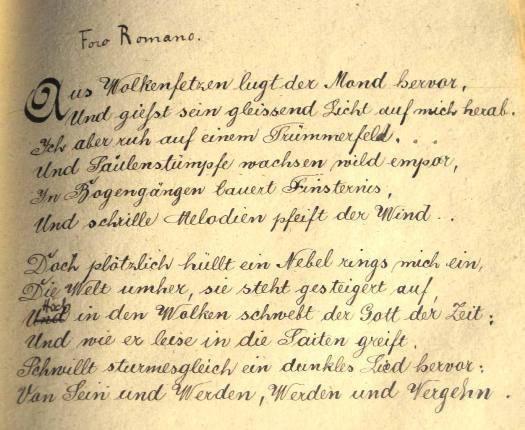 Foro Romano.
Aus Wolkenfetzen lugt der Mond hervor,
Und giesst sein gleissend Licht auf mich herab.
Ich aber ruh auf einem Trümmerfeld. . .
Und Säulenstümpfe wachsen wild empor,
In Bogengängen lauert Finsternis,
Und schrille Melodien pfeift der Wind . .
Doch plötzlich hüllt ein Nebel rings mich ein,
Die Welt umher, sie steht gesteigert auf,
Hoch
Und in den Wolken schwebt der Gott der Zeit:
Und wie er leise in die Saiten greift.
Schwillt sturmesgleich ein dunkles Lied hervor:
Von Sein und Werden, Werden und Vergehn .